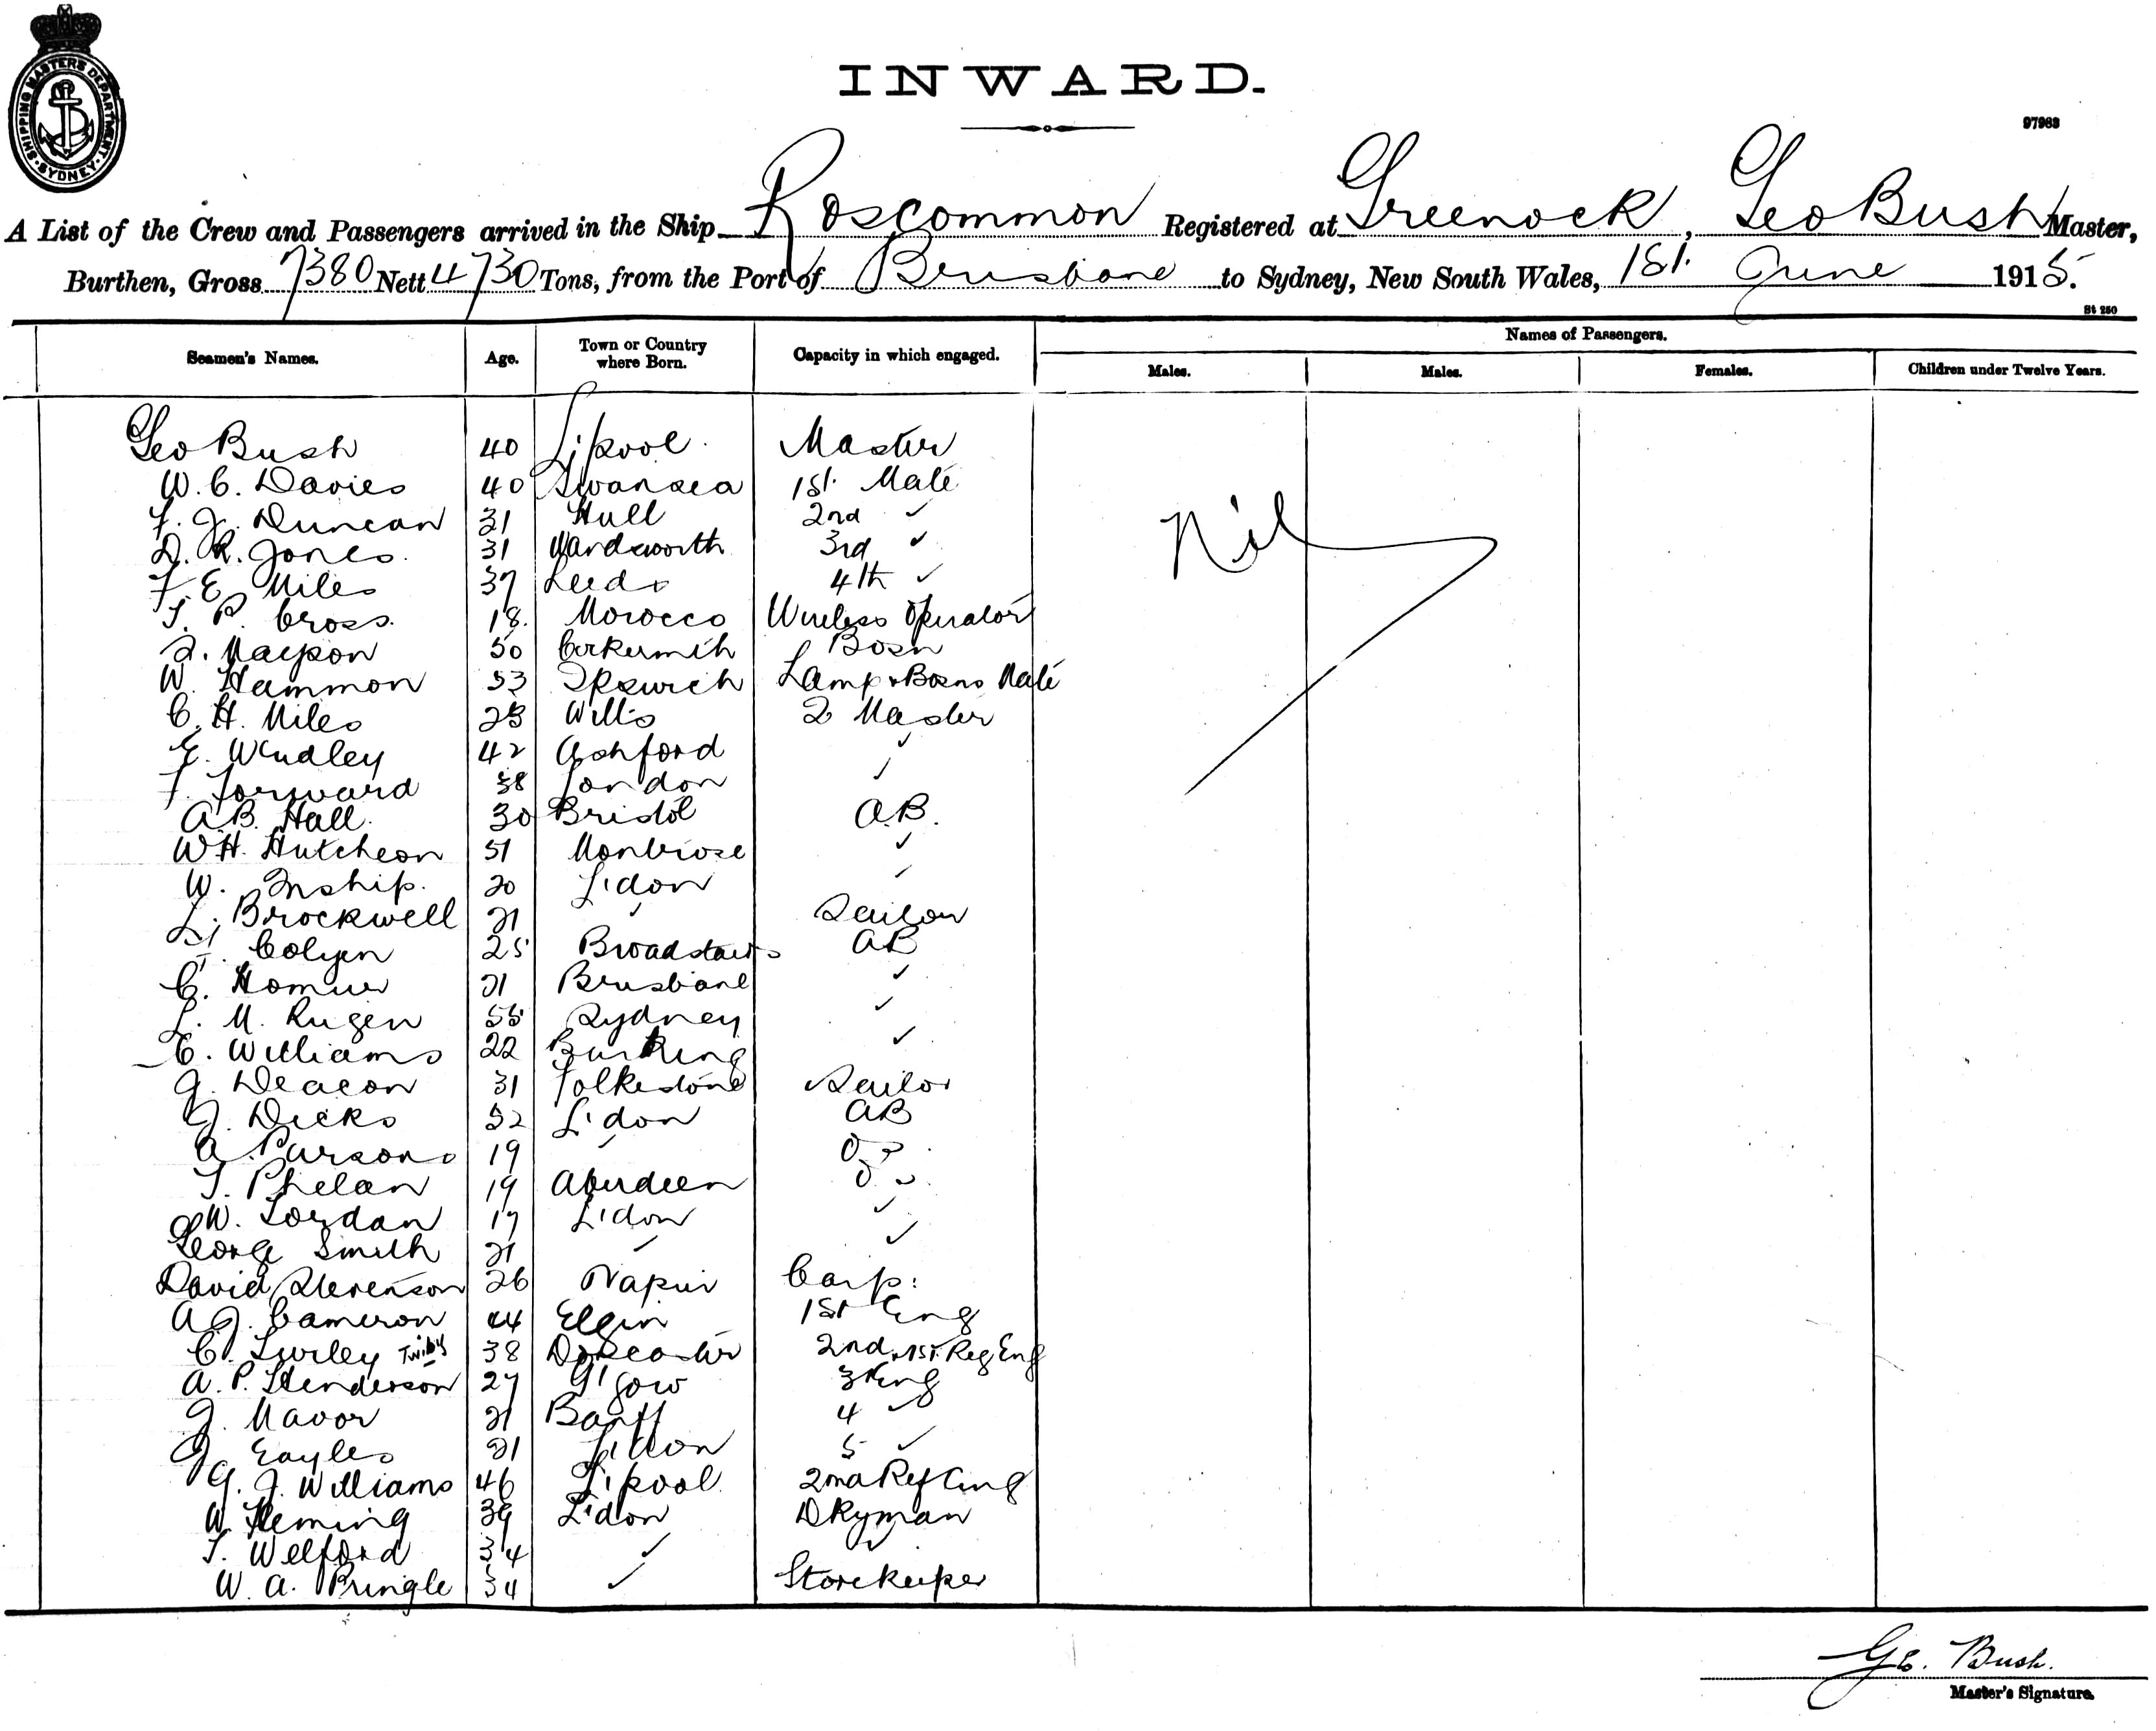 SHIPPING MASTERS DEPARTMENT. SYDNEY.
INWARD.
97983
A List of the Crew and Passengers arrived in the Ship Roscommon Registered at Greenock, Geo Bush Master,
Burthen, Gross 7380 Nett 4730 Tons, from the Port of Brisbane to Sydney, New South Wales, 1st. June 1915.
St 250
Seamen's Names. Age. Town or Country where Born. Capacity in which engaged. Names of Passengers.
Males. Males. Females. Children under Twelve Years.
Geo Bush 40 L'pool. Master
W. C. Davies 40 Swansea 1st. Mate
F. J. Duncan 31 Hull 2nd ✓
D. R. Jones. 31 Wandsworth 3rd ✓
F. E. Miles 37 Leeds 4th ✓
T. P. Cross. 18. Morocco Wireless Operator
50 Bosn
W. Hammon 53 Ipswich Lamp & Bosns Mate
C. H. Miles Wilts Q Master
E. Windley 42 Ashford ✓
F. Forward 38 London ✓
A B. Hall. 30 Bristol A.B.
W H. Hutcheon 51 Montrose ✓
W. Inship. 20 L'don ✓
L. Brockwell 21 ✓ Sailor
Colyer 25 Broadstairs AB
C. 21 Brisbane ✓
L. M. Rugen 55 Sydney ✓
C. Williams 22 Barking ✓
G. Deacon 31 Folkestone Sailor
J. Dicks 52 L'don AB
A. Parsons 19 ✓ O S
T. Phelan 19 Aberdeen O S.
W. Lordan 17 L'don ✓
George Smith 21 ✓ ✓
David Stevenson 26 Napier Carp:
A J. Cameron 44 Elgin 1st Eng
C. 38 Doncaster 2nd & 1st. Ref Eng
A. P. Henderson 27 G'gow 3 Eng
J. Mavor 21 Banff 4 ✓
J. Eayles 21 L'don 5 ✓
G. J. Williams 46 L'pool 2nd Ref Eng
W. Fleming 39 L'don DKyman
T. Welford 34 ✓ ✓
W. A. Pringle 34 ✓ Storekeeper
Nil
Geo. Bush.
Master's Signature.